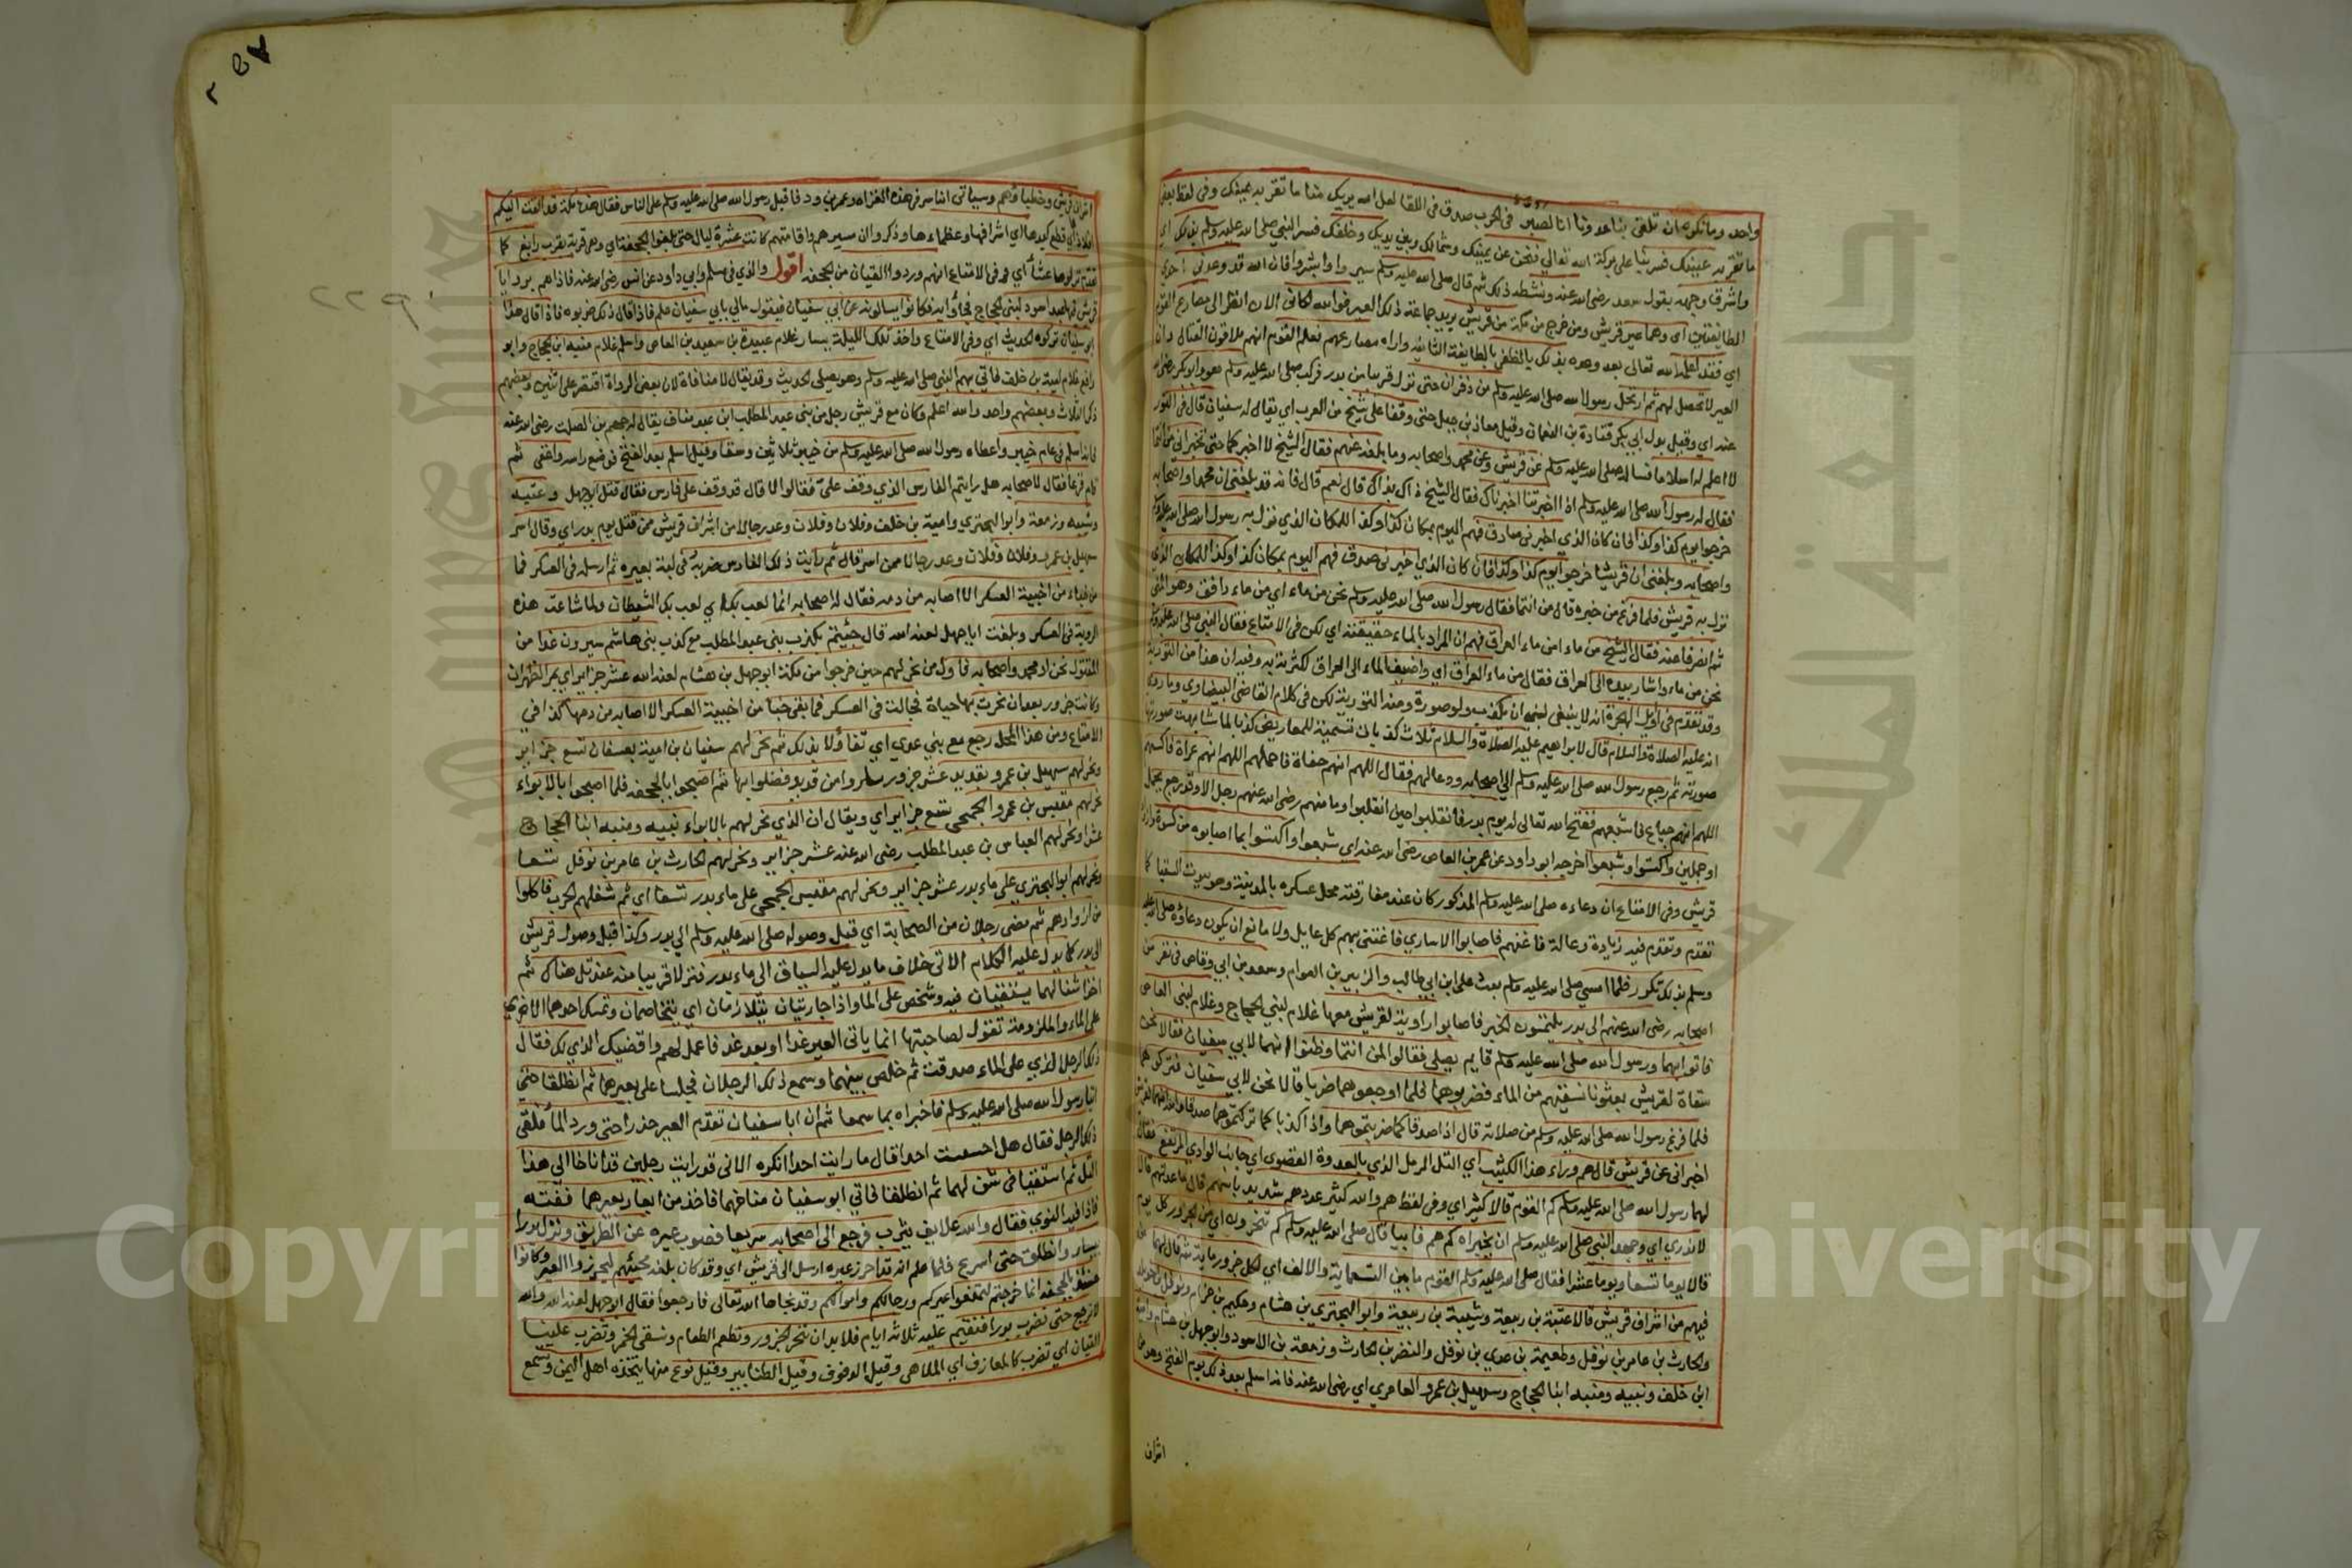 واحد وما نكره ان تلقى بنا عدونا انا لصبر في الحرب صدق في اللقا لعل الله يريك منا ما تقر به عينك وفي لفظ بعض
ما تقر به عينك فسر بنا على بركة الله تعالى فنحن عن يمينك وشمالك وبين يديك وخلفك فسر النبي صلى الله عليه وسلم بذلك اي
واشرق وجهه بقول سعد رضى الله عنه ونشطه ذلك ثم قال صلى الله عليه وسلم سيروا وابشروا فان الله قد وعدنى احدى
الطايفتين اى وهما عير قريش ومن خرج من مكة من قريش يريد حماية ذلك العير فوالله لكانى الان انظر الى مصارع القوم
اي فقد اعلمه الله تعالى بعد وعده بذلك بالظفر بالطايفة الثانية واراه مصارعهم فعلم القوم انهم ملاقون القتال وان
العير لا تحصل لهم ثم ارتحل رسول الله صلى الله عليه وسلم من ذفران حتى نزل قريبا من بدر فركب صلى الله عليه وسلم هو وابو بكر رضى الله
عنه اي وقيل بدل ابي بكر قتادة بن النعمان وقيل معاذ بن جبل حتى وقفا على شيخ من العرب اي يقال له سفيان قال في النور
لا اعلم له اسلاما فسال صلى الله عليه وسلم عن قريش وعن محمد واصحابه وما بلغه عنهم فقال الشيخ لا اخبركما حتى تخبرانى من انتما
فقال له رسول الله صلى الله عليه وسلم اذا اخبرتنا اخبرناك فقال الشيخ ذاك بذاك قال نعم قال فانه قد بلغنى ان محمدا واصحابه
خرجوا يوم كذا وكذا فان كان الذي اخبرنى صادق فهم اليوم بمكان كذا وكذا للمكان الذي نزل به رسول الله صلى الله عليه وسلم
واصحابه وبلغنى ان قريشا خرجوا يوم كذا وكذا فان كان الذي اخبرنى صدق فهم اليوم بمكان كذا وكذا للمكان الذي
نزل به قريش فلما فرغ من خبره قال من انتما فقال رسول الله صلى الله عليه وسلم نحن من ماء اي من ماء دافق وهو المنى
ثم انصرفا عنه فقال الشيخ من ماء امن ماء العراق فهم ان المراد بالماء حقيقته اي لكن في الامتاع فقال النبي صلى الله عليه وسلم
نحن من ماء واشار بيده الى العراق فقال من ماء العراق اي واضيف الماء الى العراق لكثرته به وفيه ان هذا من التورية
وقد تقدم في اوايل الهجرة انه لا ينبغى لنبى ان يكذب ولو صورة ومنه التورية لكن في كلام القاضى البيضاوي وما روي
انه عليه الصلاة والسلام قال لابراهيم عليه الصلاة والسلام ثلاث كذبات تسمية للمعاريض كذبا لما شابهت صورتها
صورته ثم رجع رسول الله صلى الله عليه وسلم الى اصحابه ودعا لهم فقال اللهم انهم حفاة فاحملهم اللهم انهم عراة فاكسهم
اللهم انهم جياع فاشبعهم ففتح الله تعالى له يوم بدر فانقلبوا حين انقلبوا وما منهم رضى الله عنهم رجل الا وقد رجع بجمل
او جملين واكتسوا وشبعوا اخرجه ابو داود عن عمر بن العاص رضى الله عنه اي شبعوا واكتسوا بما اصابوه من كسوة وازواد
قريش وفي الامتاع ان دعاءه صلى الله عليه وسلم المذكور كان عند مفارقته محل عسكره بالمدينة وهو بيوت السقيا كما
تقدم وتقدم فيه زيادة وعالة فاغنهم فاصابوا الاساري فاغتنى بهم كل عايل ولا مانع ان يكون دعاؤه صلى الله عليه
وسلم بذلك تكرر فلما امسى صلى الله عليه وسلم بعث على ابن ابي طالب والزبير بن العوام وسعد بن ابي وقاص فى نفر من
اصحابه رضى الله عنهم الى بدر يلتمسون الخبر فاصابوا راوية لقريش معها غلام لبني الحجاج وغلام لبنى العاص
فاتوا بهما ورسول الله صلى الله عليه وسلم قايم يصلي فقالوا لمن انتما وظنوا انهما لابي سفيان فقالا نحن
سقاة لقريش بعثونا نسقيهم من الماء فضربوهما فلما اوجعوهما ضربا قالا نحن لابي سفيان فتركوهما
فلما فرغ رسول الله صلى الله عليه وسلم من صلاته قال اذا صدقاكم ضربتموهما واذا كذباكم تركتموهما صدقا والله انهما لقريش
اخبرانى عن قريش قال هم وراء هذا الكثيب اي التل الرمل الذي بالعدوة القصوى اي جانب الوادي المرتفع فقال
لهما رسول الله صلى الله عليه وسلم كم القوم قالا كثير اي وفي لفظ هم والله كثير عددهم شديد باسهم قال ما عدتهم قالا
لا ندري اي وجهد النبي صلى الله عليه وسلم ان يخبراه كم هم فابيا قال صلى الله عليه وسلم كم تنحرون اي من الجزور كل يوم
قالا يوما تسعا ويوما عشرا فقال صلى الله عليه وسلم القوم ما بين التسعماية والالف اي لكل جزور ماية ثم قال لهما من
فيهم من اشراف قريش قالا عتبة بن ربيعة وشيبة بن ربيعة وابو البختري بن هشام وحكيم بن حزام ونوفل بن خويلد
والحارث بن عامر بن نوفل وطعيمة بن عدي بن نوفل والنضر بن الحارث وزمعة بن الاسود وابو جهل بن هشام وامية
ابن خلف ونبيه ومنبه ابنا الحجاج وسهيل بن عمرو العامري اي رضى الله عنه فانه اسلم بعد ذلك يوم الفتح وهو من
اشراف
اشراف قريش وخطبائهم وسياتى انه اسر في هذه الغزاه وعمرو بن ود فاقبل رسول الله صلى الله عليه وسلم على الناس فقال هذه مكة قد القت اليكم
افلاذ اي قطع كبدها اي اشرافها وعظماءها وذكروا ان مسيرهم واقامتهم كانت عشرة ليال حتى بلغوا الجحفة اي وهى قرية بقرب رابغ كما
تقدم نزلوها عشاء اي في الامتاع انهم وردوا القيان من الجحفه اقول والذي في مسلم وابي داود عن انس رضى الله عنه فاذا هم بروايا
قريش فيها عبد اسود لبنى الحجاج فجاؤا به فكانوا يسالونه عن ابي سفيان فيقول مالي بابي سفيان علم فاذا قال ذلك ضربوه فاذا قال هذا
ابو سفيان تركوه الحديث اي وفي الامتاع واخذ تلك الليلة يسار غلام عبيدة بن سعيد بن العاص واسلم غلام منبه ابن الحجاج وابو
رافع غلام امية بن خلف فاتي بهم النبي صلى الله عليه وسلم وهو يصلى الحديث وقد يقال لا منافاة لان بعض الرواة اقتصر على اثنين وبعضهم
ذكر الثلاث وبعضهم واحد والله اعلم وكان مع قريش رجل من بنى عبد المطلب ابن عبد مناف يقال له جهيم بن الصلت رضى الله عنه
فانه اسلم في عام خيبر واعطاه رسول الله صلى الله عليه وسلم من خيبر ثلاثين وسقا وقيل اسلم بعد الفتح فوضع راسه واغفى ثم
قام فزعا فقال لاصحابه هل رايتم الفارس الذي وقف علىّ فقالوا لا قال قد وقف على فارس فقال قتل ابو جهل وعتبه
وشيبه وزمعة وابو البختري وامية بن خلف وفلان وفلان وعد رجالا من اشراف قريش ممن قتل يوم بدر اي وقال اسر
سهيل بن عمرو وفلان وفلان وعد رجالا ممن اسر قال ثم رايت ذلك الفارس ضرب في لبة بعيره ثم ارسله فى العسكر فما
من خباء من اخبية العسكر الا اصابه من دمه فقال له اصحابه انما لعب بك اي لعب بك الشيطان ولما شاعت هذه
الروية فى العسكر وبلغت ابا جهل لعنه الله قال جئتم بكذب بنى عبد المطلب مع كذب بنى هاشم سيرون غدا من
المقتول نحن او محمد واصحابه واول من نحر لهم حين خرجوا من مكة ابو جهل بن هشام لعنه الله عشر جزاير اي بمر الظهران
وكانت جزور بعد ان نحرت بها حياة فجالت في العسكر فما بقى خبا من اخبية العسكر الا اصابه من دمها كذا في
الامتاع ومن هذا المحل رجع مع بني عدي اي تفاؤلا بذلك ثم نحر لهم سفيان بن امية بعسفان تسع جزاير
ونحر لهم سهيل بن عمرو بقديد عشر جزور وساروا من قديد فضلوا بها ثم اصبحوا بالجحفه فلما اصبحوا بالابواء
نحر لهم مقيس بن عمرو الجمحى تسع جزاير اي ويقال ان الذي نحر لهم بالابواء نبيه ومنبه ابنا الحجاج
عشرا ونحر لهم العباس بن عبد المطلب رضى الله عنه عشر جزاير ونحر لهم الحارث بن عامر بن نوفل تسعا
ونحر لهم ابو البختري على ماء بدر عشر جزاير ونحر لهم مقيس الجمحى على ماء بدر تسعا اي ثم شغلهم الحرب فاكلوا
من ازوادهم ثم مضى رجلان من الصحابة اي قبل وصوله صلى الله عليه وسلم الى بدر وكذا قبل وصول قريش
الى بدر كما يدل عليه الكلام الاتي خلاف ما يدل عليه السياق الى ماء بدر فنزلا قريبا منه عند تل هناك ثم
اخذا شنا لهما يستقيان فيه وشخص على الماء واذا جاريتان يتلازمان اي يتخاصمان وتمسك احداهما الاخرى
على الماء والملزومة تقول لصاحبتها انما ياتى العير غدا او بعد غد فاعمل لهم واقضيك الذي لك فقال
ذلك الرجل الذي على الماء صدقت ثم خلص بينهما وسمع ذلك الرجلان فجلسا على بعيرهما ثم انطلقا حتى
اتيا رسول الله صلى الله عليه وسلم فاخبراه بما سمعا ثم ان ابا سفيان تقدم العير حذرا حتى ورد الماء فلقى
ذلك الرجل فقال هل احسست احدا قال ما رايت احدا انكره الا انى قد رايت رجلين قد اناخا الى هذا
التل ثم استقيا فى شن لهما ثم انطلقا فاتي ابو سفيان مناخهما فاخذ من ابعار بعيرهما ففته
فاذا فيه النوي فقال والله علايف يثرب فرجع الى اصحابه سريعا فصوب عيره عن الطريق ونزل بدرا
بيسار وانطلق حتى اسرع فلما علم انه قد احرز عيره ارسل الى قريش اي وقد كان بلغه مجيئهم ليحرزوا العير وكانوا
حينئذ بالجحفه انما خرجتم لتمنعوا عيركم ورجالكم واموالكم وقد نجاها الله تعالى فارجعوا فقال ابو جهل لعنه الله والله
لا نرجع حتى نحضر بدرا فنقيم عليه ثلاثة ايام فلا بد ان ننحر الجزور ونطعم الطعام ونسقى الخمر وتضرب علينا
القيان اي تضرب كالمعازف اي الملاهى وقيل الدفوف وقيل الطنابير وقيل نوع منها يتخذه اهل اليمن ويسمع